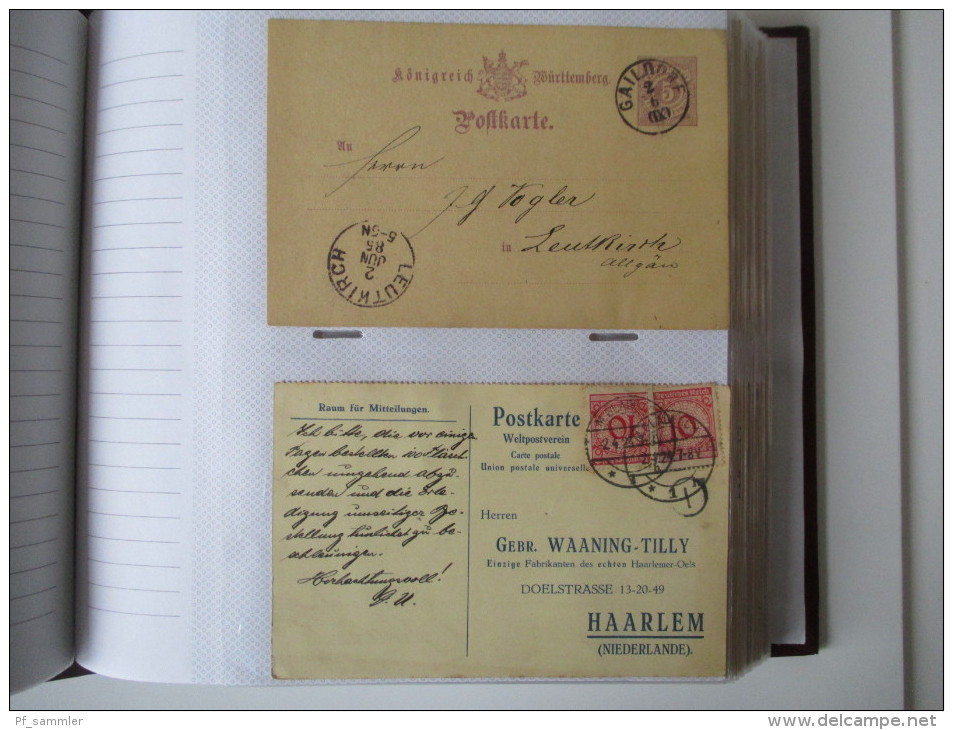 Königreich Württemberg.
Postkarte.
GAILDORF
2
6
5
An
Herrn
J G Vogler
in Leutkirch
Allgäu
LEUTKIRCH
2
JUN
85
5-6N
Raum für Mitteilungen.
Ich bitte, die vor einigen
Tagen bestellten 100 Fläsch-
chen umgehend abzu-
senden und die Erle-
digung umseitiger Be-
stellung tunlichst zu be-
schleunigen.
Hochachtungsvoll!
D. U.
Postkarte
Weltpostverein
Carte postale
Union postale universelle
10
Deutsches Reich
10
Herren
GEBR. WAANING-TILLY
Einzige Fabrikanten des echten Haarlemer-Oels
DOELSTRASSE 13-20-49
HAARLEM
(NIEDERLANDE).
Pf_sammler
www.delcampe.net